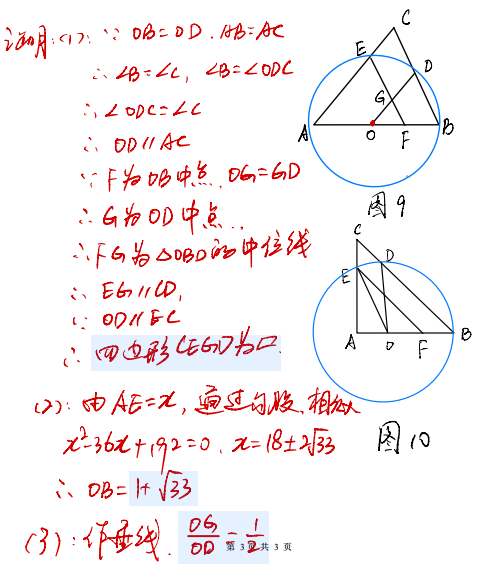 证明:(1):∵ OB=OD, AB=AC
∴ ∠B=∠C, ∠B=∠ODC
∴ ∠ODC=∠C
∴ OD∥AC
∵ F为OB中点, OG=GD
∴ G为OD中点
∴ FG为△OBD的中位线
∴ EG∥CD,
∵ OD∥EC
∴ 四边形CEGD为▱.
(2):由AE=x, 通过勾股、相似
x²-36x+192=0, x=18±2√33
∴ OB=1+√33
(3):作垂线, OG/OD=1/2
第 3 页 共 3 页
C
E
D
G
A
O
F
B
图9
C
E
D
A
O
F
B
图10